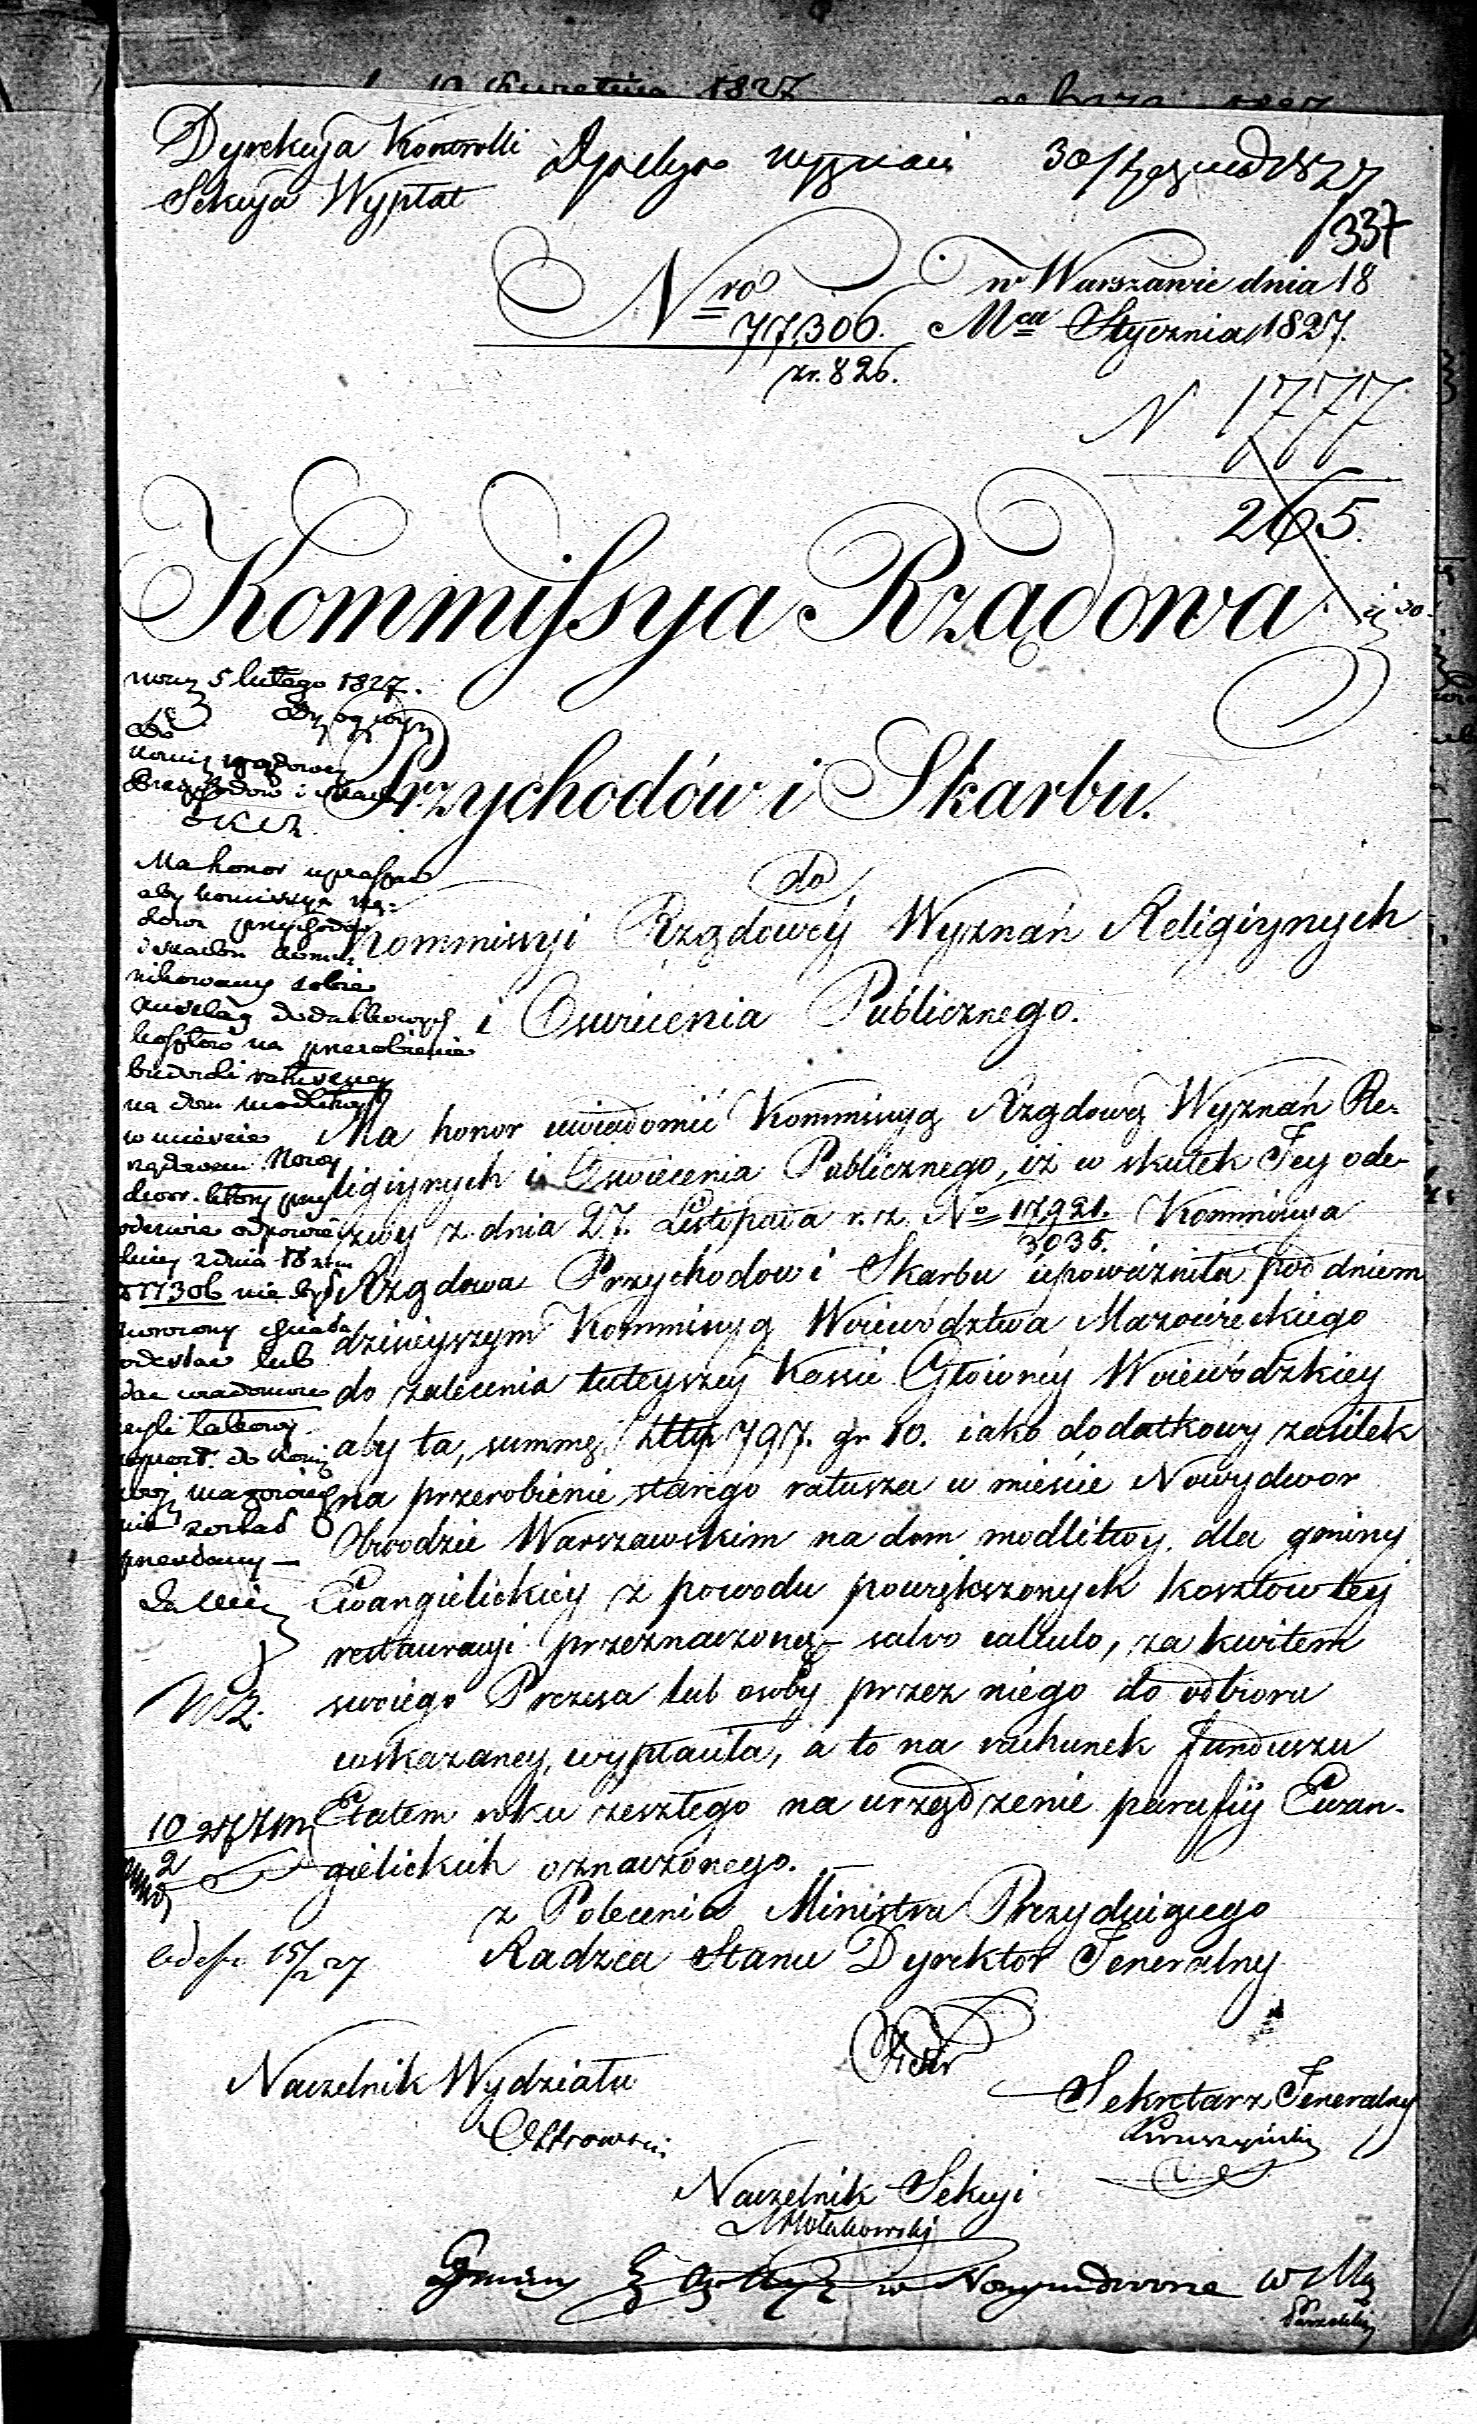 Dyrekcya Kontrolli
Sekcya Wypłat
30 1827
337
Nro w Warszawie dnia 18
77,306. Mca Stycznia 1827.
zr. 826.
N 1777
265.
Kommissya Rządowa
Przychodów i Skarbu.
do
Kommissyi Rządowéy Wyznań Religiynych
i Oswiecenia Publicznego.
Ma honor uwiadomić Kommissyą Rządową Wyznań Re-
ligiynych i Oswiecenia Publicznego, iż w skutek Jey ode-
zwy z dnia 27. Listopada r. z. No 17,921. Kommissya
3035.
Rządowa Przychodow i Skarbu upoważniła pod dniem
dzisieyszym Kommissyą Woiewództwa Mazowieckiego
do zalecenia tuteyszey Kassie Główney Woiewódzkiey
aby ta, summę Złtp 797. gr 10. iako dodatkowy zasiłek
na przerobienie starego ratusza w mieście Nowydwor
Obwodzie Warszawskim na dom modlitwy dla gminy
Ewangielickiey z powodu powiększonych kosztow tey
restauracyi przeznaczoną salvo calculo, za kwitem
swoiego Prezesa lub osoby przez niego do odbioru
wskazaney, wypłaciła, a to na rachunek funduszu
Etatem roku zeszłego na urządzenie parafiy Ewan-
gielickich oznaczonego.
z Polecenia Ministra Prezyduiącego
Radzca Stanu Dyrektor Jeneralny
Naczelnik Wydziału
Ostrowski
Sekretarz Jeneralny
Kruszyński
Naczelnik Sekcyi
w Nowymdworze w
5 lutego 1827.
Do
Przychodów i Skarbu
Ma honor upraszać
aby kommissya Rzą-
dowa przychodów
i skarbu kommu-
nikowany sobie
anszlag dodatkowych
kosztów na przerobienie
na dom modlitwy
w mieście
Nowy
dwor. który przy
odezwie odpowie-
dniey z dnia 18
77306 nie był
zwrócony chciała
odesłać lub
dać wiadomość
czyli takowy
nie został
przesłany —
15/2 27